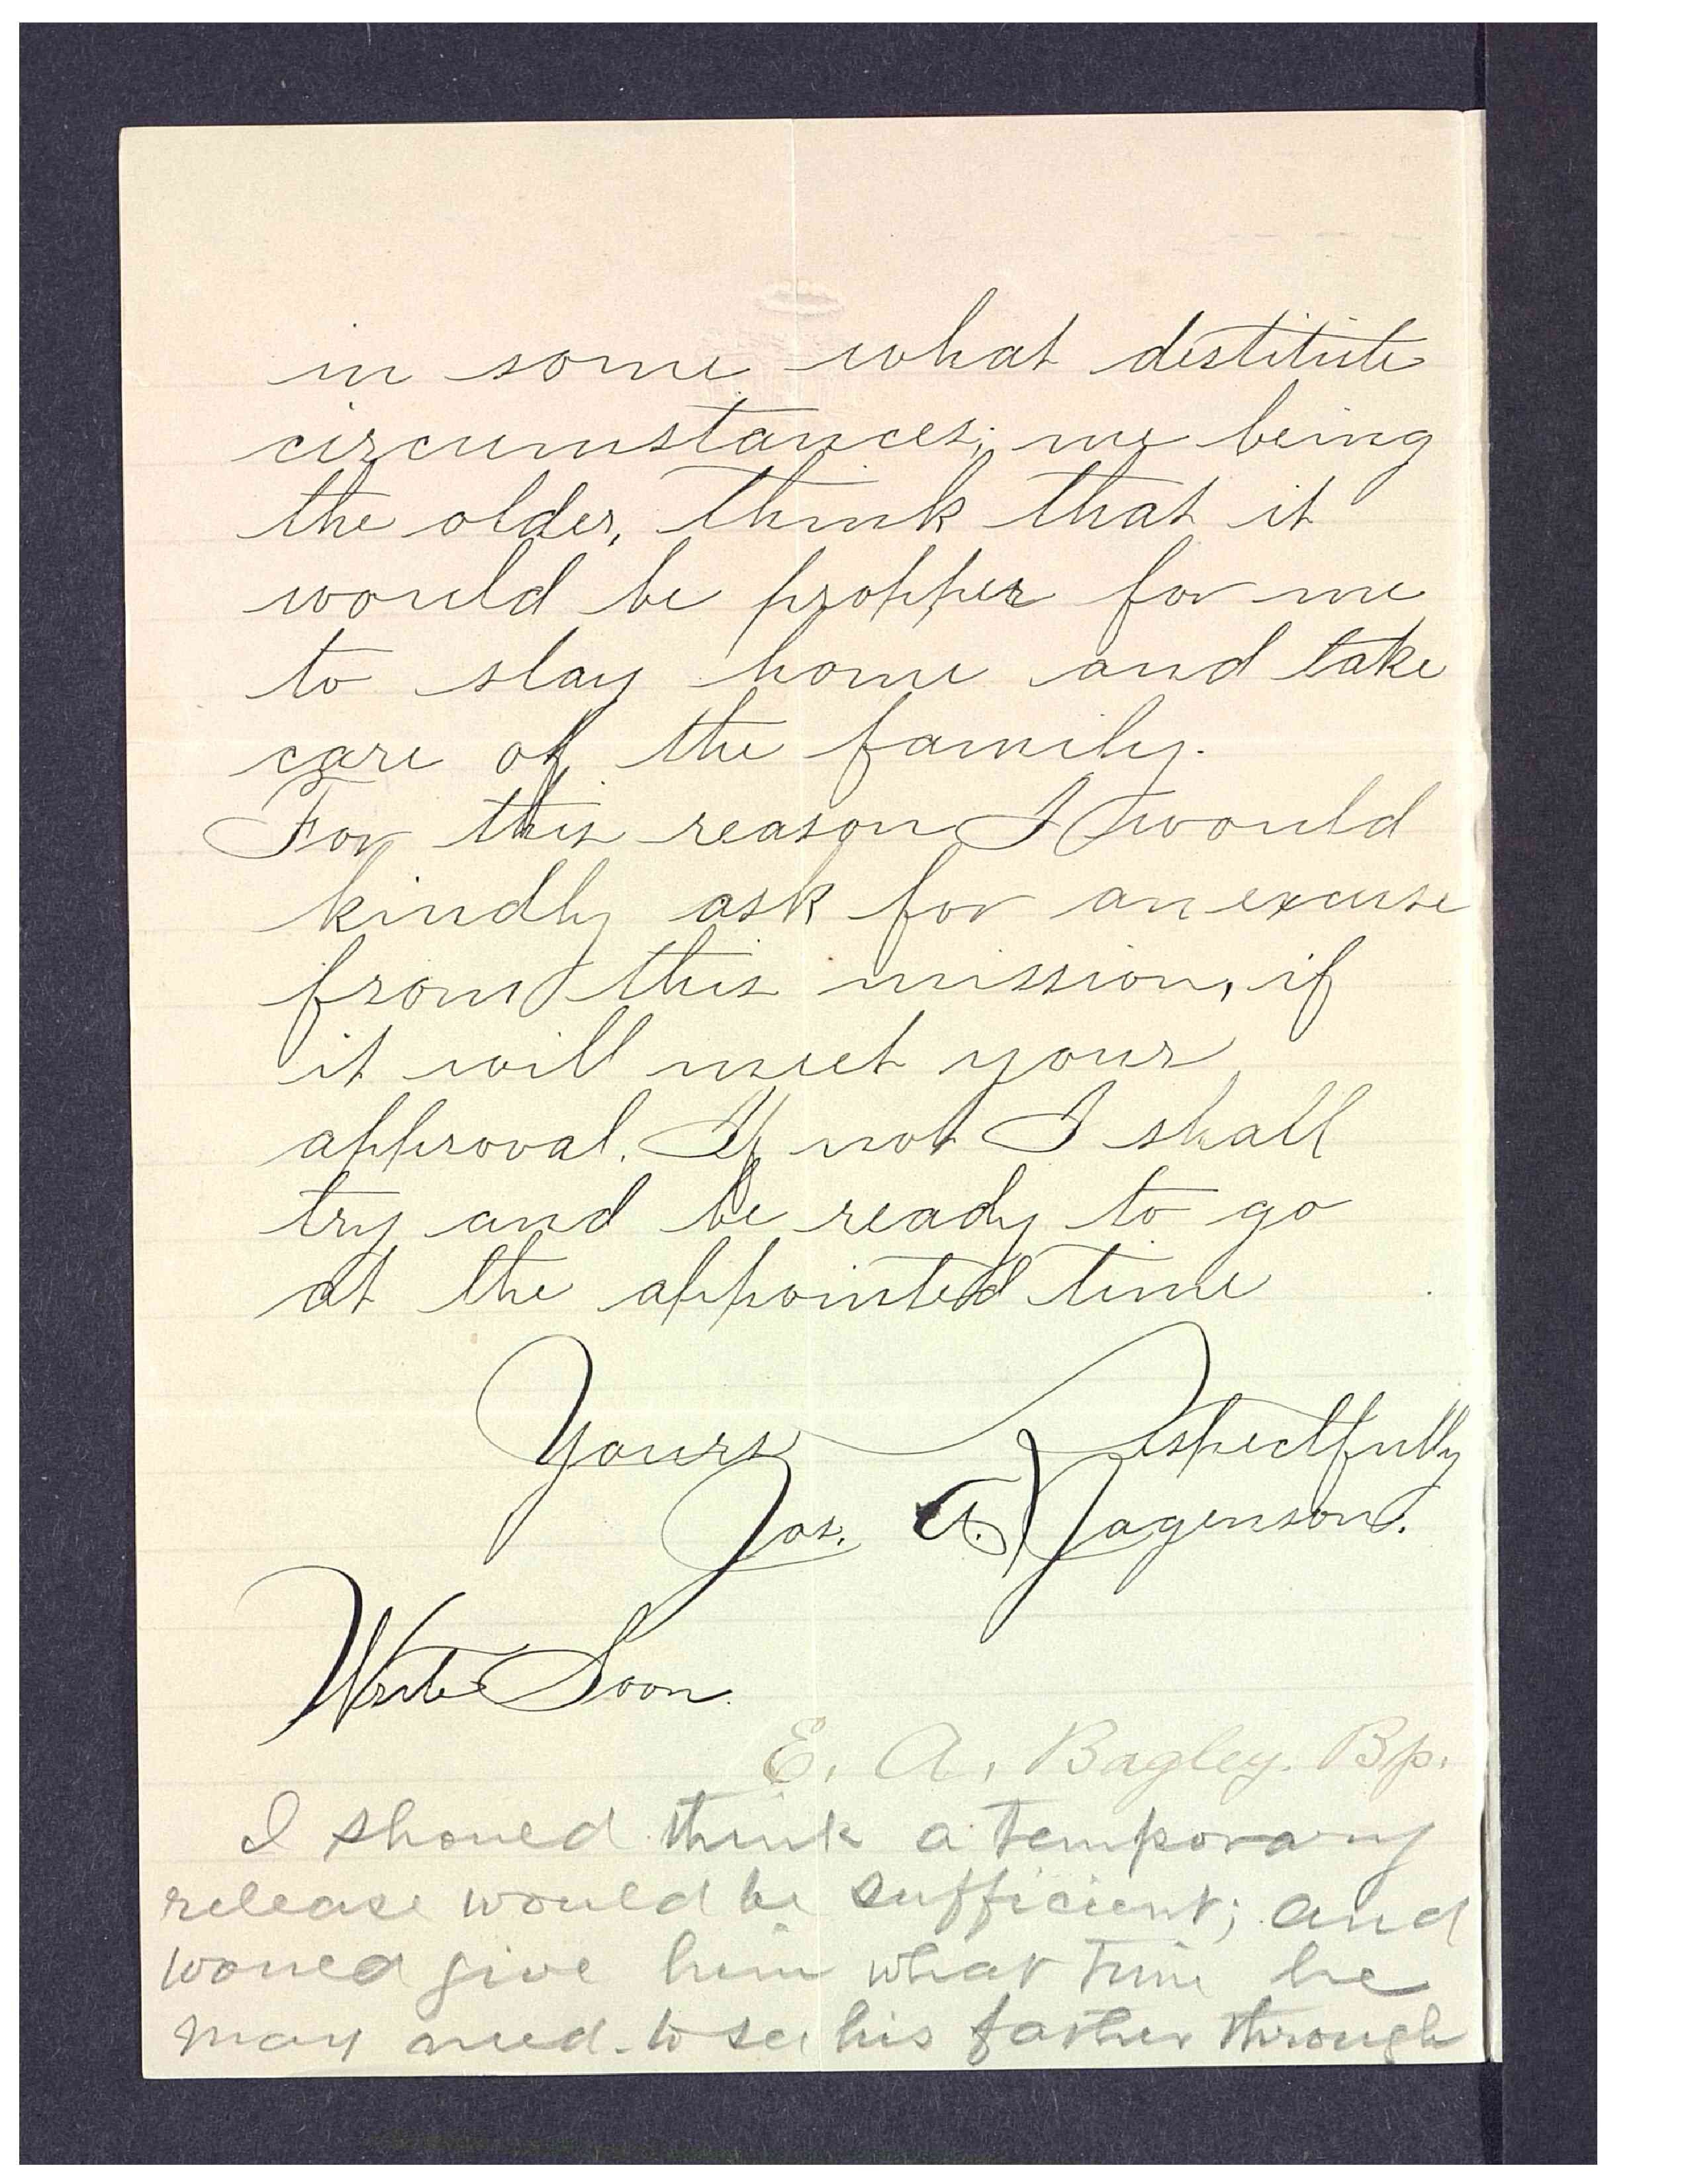 in some what destitute
circumstances; me being
the older, think that it
would be propper for me
to stay home and take
care of the family.
For this reason I would
kindly ask for an excuse
from this mission, if
it will meet your
approval. If not I shall
try and be ready to go
at the appointed time
Yours Respectfully
Jos. A. Jagenson.
Write Soon.
E. A. Bagley. Bp.
I should think a temporary
release would be sufficient; and
would give him what time he
may need to see his father through